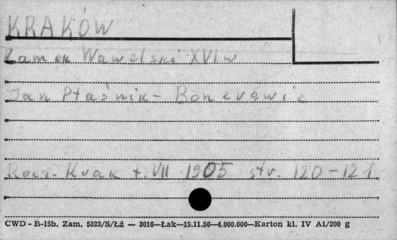 KRAKÓW
Zamek Wawelski XVI w
Jan Ptaśnik - Bonerowie
Rocz. Krak t. VII 1905 str. 120-121
CWD - B-15b, Zam. 5323/S/Łź — 3016—Łak—15.11.56—4.000.000—Karton kl. IV A1/200 g